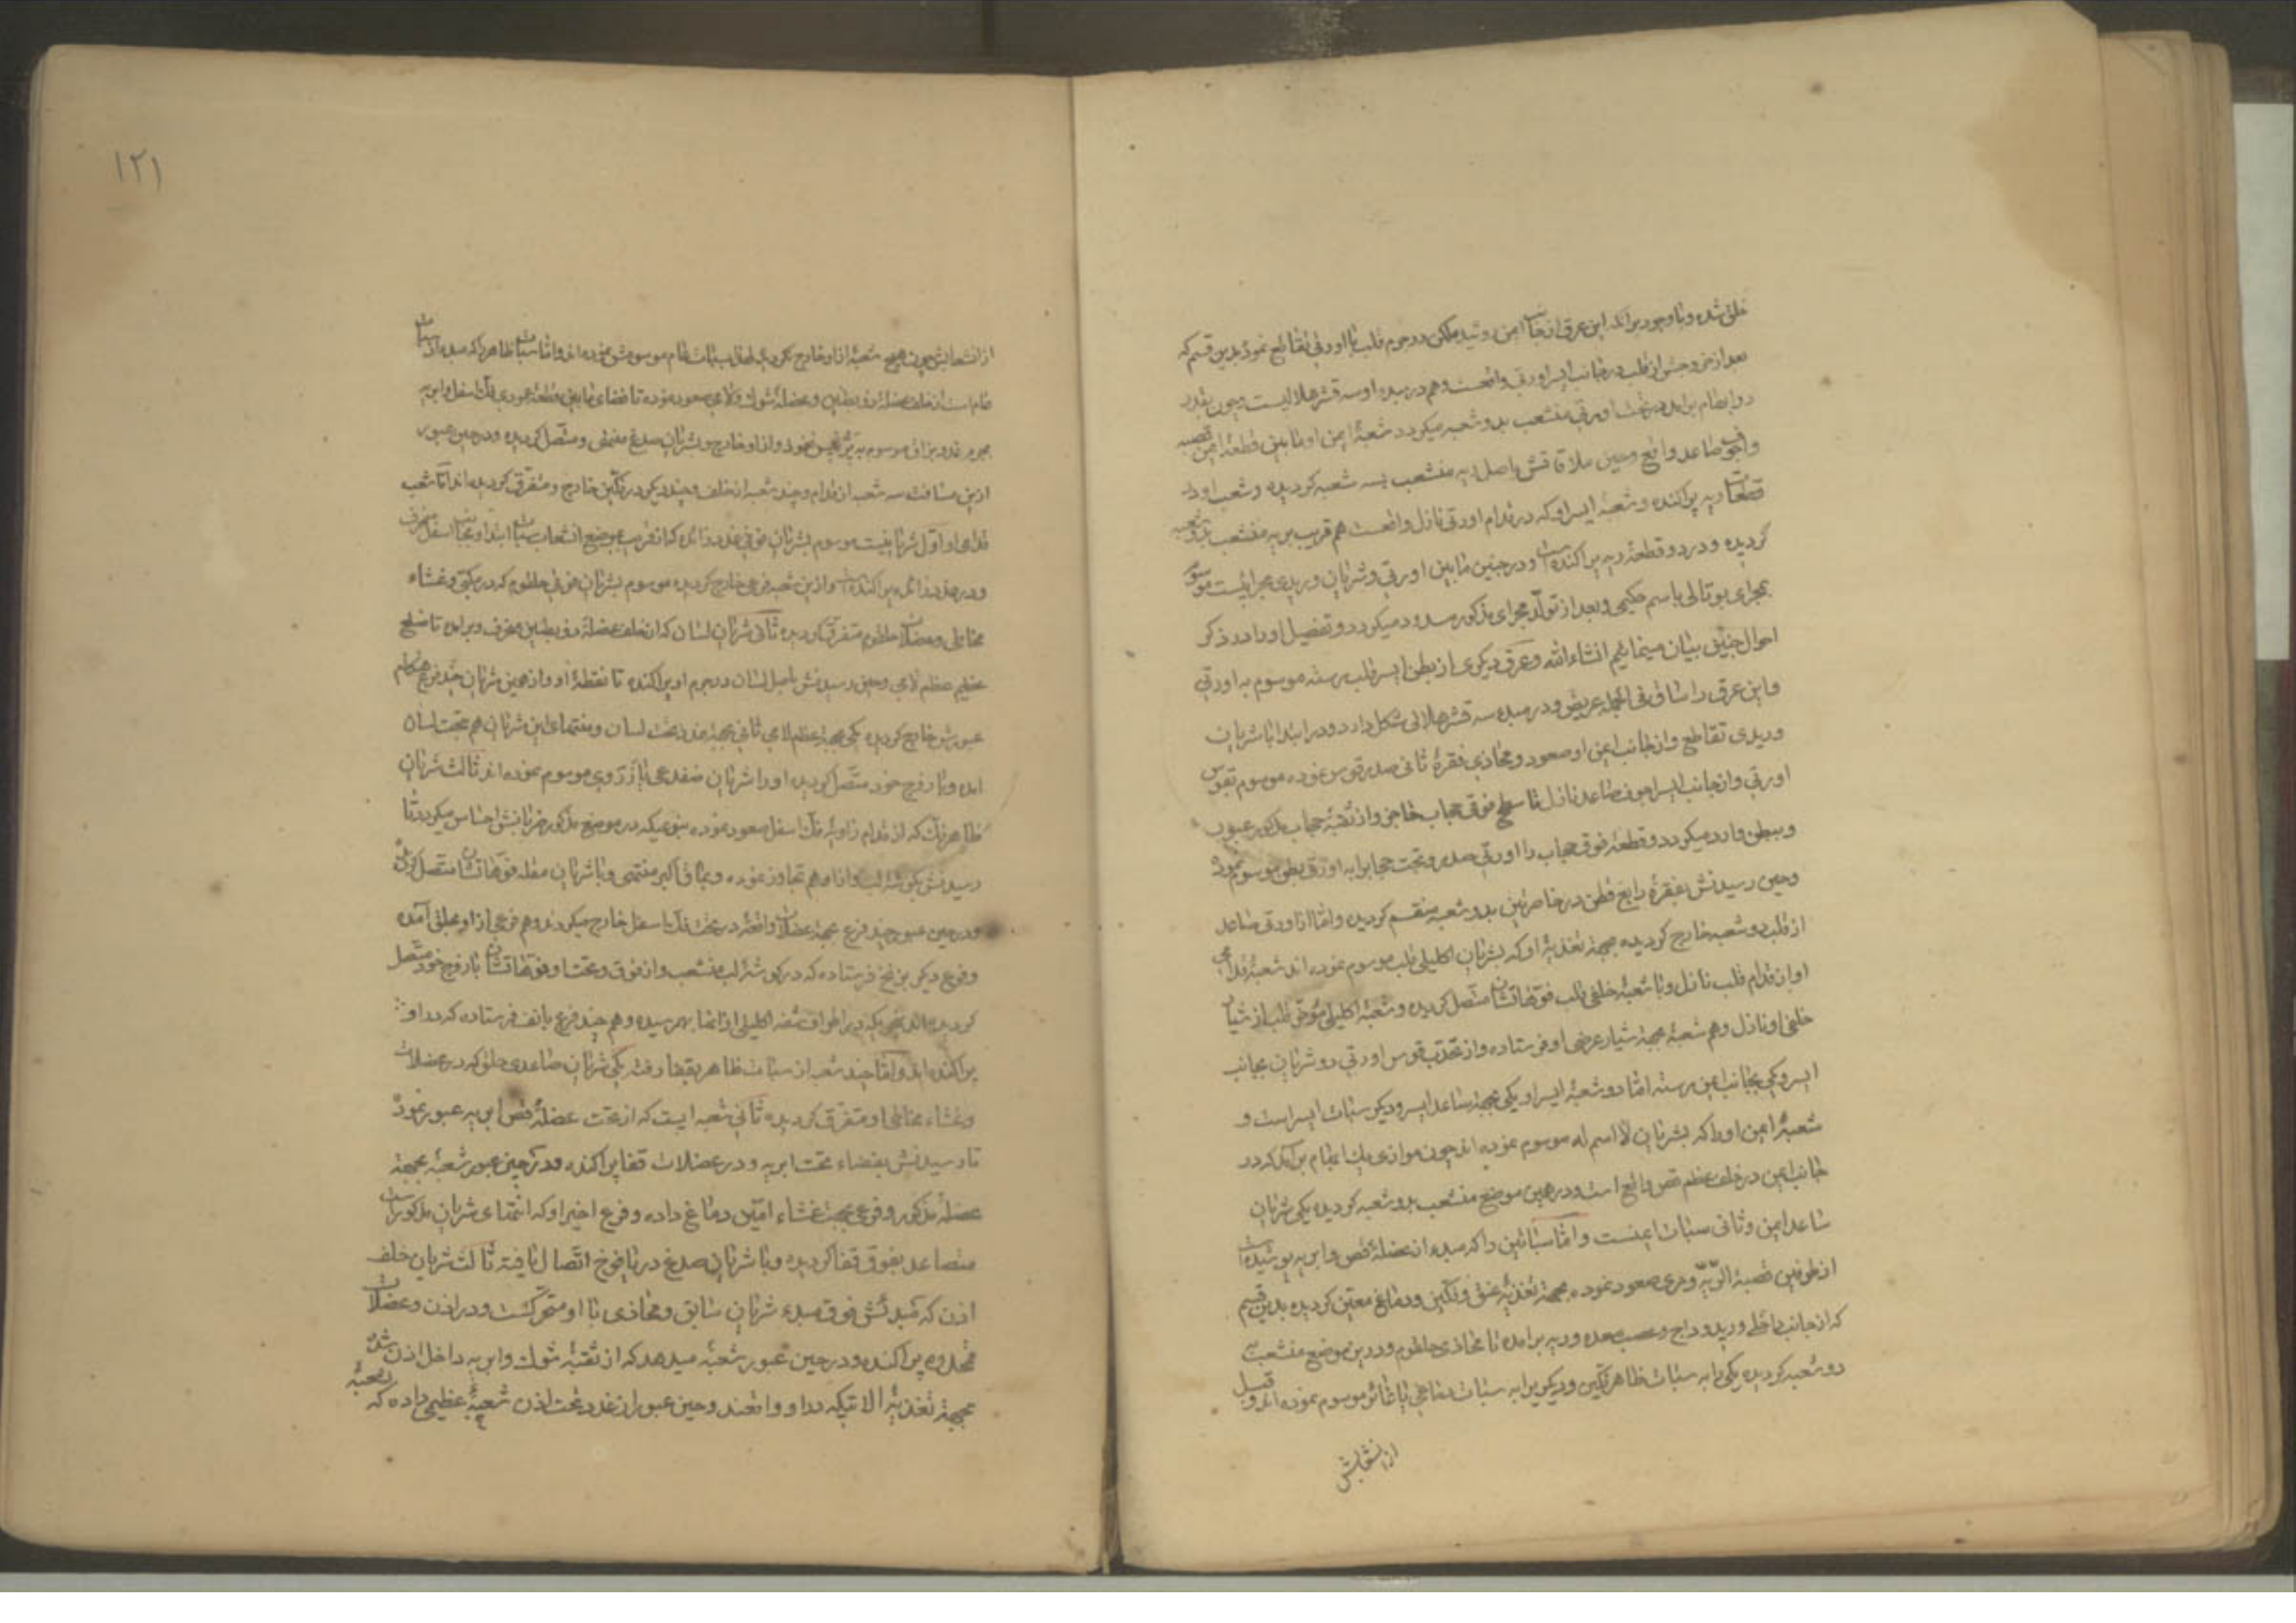 خلق شده و با وجود بر آنکه این عرق از جانب ایمن روئیده لکن در جرم قلب با اورتی تقاطع نموده بدین قسم که
بعد از خروجش از قلب در جانب ایسر اورتی واقعست و هم در مبدء او سه قشر هلالیست و چون بقدر
دو ابهام برآید در تحت اورتی منشعب بدو شعبه میگردد شعبهٔ ایمن او مابین قطعهٔ ایمن قصبه
و اجوف صاعد واقع و حین ملاقاتش باصل ریه منشعب بسه شعبه گردیده و شعب او در
قطعات ریه پراکنده و شعبهٔ ایسر او که در قدام اورتی نازل واقعست هم قریب بریه منشعب بدو شعبه
گردیده و در دو قطعهٔ ریه پراکنده است و در جنین مابین اورتی و شریان وریدی مجرائیست موسوم
بمجرای بوتالی باسم حکیمی و بعد از تولد مجرای مذکور مسدود میگردد و تفصیل او را در ذکر
احوال جنین بیان مینمائیم انشاءالله و عرق دیگری از بطن ایسر قلب رسته موسوم به اورتی
و این عرق را ساق فی الجمله عریض و در مبدء سه قشر هلالی شکل دارد و در ابتدا با شریان
وریدی تقاطع و از جانب ایمن او صعود و محاذی فقرهٔ ثانی صدر قوس نموده موسوم بقوس
اورتی و از جانب ایسر اجوف صاعد نازل تا سطح فوق حجاب حاجز و از ثقبهٔ حجاب مذکور عبور
و ببطن وارد میگردد و قطعهٔ فوق حجاب را اورتی صدر و تحت حجابرا به اورتی بطن موسوم نموده
و حین رسیدنش بفقرهٔ رابع قطن در خاصرتین بدو شعبه منقسم گردیده و اما از اورتی صاعد
از قلب دو شعبه خارج گردیده بجهة تغذیهٔ او که بشریان اکلیلی قلب موسوم نموده اند شعبهٔ قدامی
او از قدام قلب نازل و با شعبهٔ خلفی قلب فوقهاتشان متصل گردیده و شعبهٔ اکلیلی مؤخر قلب از شیار
خلفی او نازل و هم شعبهٔ بجهة شیار عرضی او فرستاده و از تحدب قوس اورتی دو شریان بجانب
ایسر و یکی بجانب ایمن رسته اما دو شعبهٔ ایسر او یکی بجهة ساعد ایسر و دیگر سبات ایسر است و
شعبهٔ ایمن او را که بشریان لا اسم له موسوم نموده اند چون موازی یک ابهام برآید که در
جانب ایمن در خلف عظم قص واقع است و در همین موضع منشعب بدو شعبه گردیده یکی شریان
ساعد ایمن و ثانی سبات ایمنست و اما سباتین را که مبدء از عضلهٔ قص و ابریه پوشیده است
از طرفین قصبة الریه و مری صعود نموده بجهة تغذیهٔ عنق و فکین و دماغ معین گردیده بدین قسم
که از جانب داخل ورید وداج و عصب معده و ریه برآمده تا محاذی حلقوم و در این موضع منشعب به
دو شعبه گردیده یکی را به سبات ظاهر فکین و دیگریرا به سبات دماغی یا غائر موسوم نموده اند و قبل
از انشعابش
۱۲۱
از انشعابش چون هیچ شعبهٔ از او خارج نگردیده لهذا به سبات عام موسومش نموده اند و اما سبات ظاهر را که مبدء از سبات
عام است از خلف عضلهٔ ذو بطنین و عضلهٔ شوک و لامی صعود نموده تا فضای مابین قطعهٔ عمودی فک اسفل و ابریه
بجرم غدد بزاق موسوم به پرتجیق نفوذ و از او خارج و بشریان صدغ منتهی و متصل گردیده و در حین عبور
ازین مسافت سه شعبه از قدام و چند شعبه از خلف و چند دیگر در فکین خارج و متفرق گردیده اند اما شعب
قدامی او اول شریانیست موسوم بشریان فوقی غدد زائده که از قرب موضع انشعاب سبات ابتدا و بجانب اسفل منحرف
و در غدد زائده پراکنده است و ازین شعبه فرعی خارج گردیده موسوم بشریان فوقی حلقوم که در مکبی و غشاء
مخاطی و عضلات حلقوم متفرق گردیده ثانی شریان لسان که از خلف عضلهٔ ذو بطنین منحرف و برآمده تا ضلع
عظیم عظم لامی و حین رسیدنش باصل لسان در جرم او پراکنده تا نقطهٔ او و از همین شریان چند فرع هنگام
عبورش خارج گردیده یکی بجهة عظم لامی ثانی بجهة غدد تحت لسان و منتهای این شریان هم تحت لسان
آمده و با زوج خود متصل گردیده او را شریان ضفدعی یا زوروی موسوم نموده اند ثالث شریان
ظاهر فک که از قدام زاویهٔ فک اسفل صعود نموده بنوعیکه در موضع مذکور ضربانش احساس میگردد تا
رسیدنش بگوشهٔ لب و از او هم تجاوز نموده و بماق اکبر منتهی و با شریان مقله فوهاتشان متصل گردیده
و در حین عبور چند فرع بجهة عضلات واقعهٔ در تحت فک اسفل خارج میگردند و هم فرعی از او بحلق آمده
و فرع دیگر بزنخ فرستاده که در گوشهٔ لب منشعب و از فوق و تحت او فوهاتشان با زوج خود متصل
گردیده مانند نهجی که در اطراف شفه اکلیلی از آنها بهم رسیده و هم چند فرع بانف فرستاده که در او
پراکنده اند و اما چند شعبه از سبات ظاهر بقفا رفته یکی شریان صاعدی حلق که در عضلات
و غشاء مخاطی او متفرق گردیده ثانی شعبه ایست که از تحت عضلهٔ قص ابریه عبور نموده
تا رسیدنش بفضاء تحت ابریه و در عضلات قفا پراکنده و در حین عبور شعبهٔ بجهة
عضلهٔ مذکور و فرعی بجهة غشاء امین دماغ داده و فرع اخیر او که انتهای شریان مذکور است
متصاعد بفوق قفا گردیده و با شریان صدغ در یافوخ اتصال یافته ثالث شریان خلف
اذن که مبدئش فوق مبدء شریان سابق و محاذی با او متحرکست و در اذن و عضلات
مخدوه پراکنده و در حین عبور شعبهٔ میدهد که از ثقبهٔ شوک و ابریه داخل اذن شده
بجهة تغذیهٔ آلاتیکه در او واقعند و حین عبور از غدد تحت اذن شعبهٔ عظیمی داده که بجهة